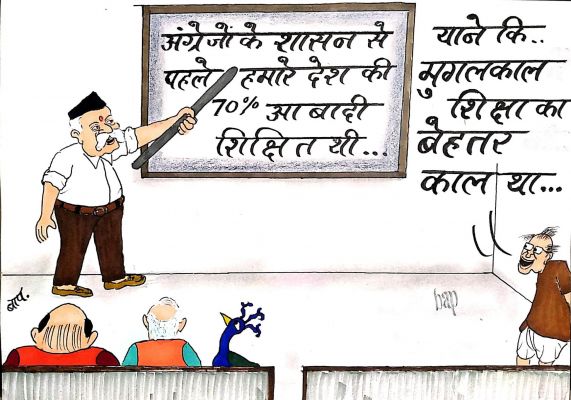 अंग्रेजों के शासन से
पहले हमारे देश की
70% आबादी
शिक्षित थी...
याने कि..
मुगलकाल
शिक्षा का
बेहतर
काल था...
बाप.
bap